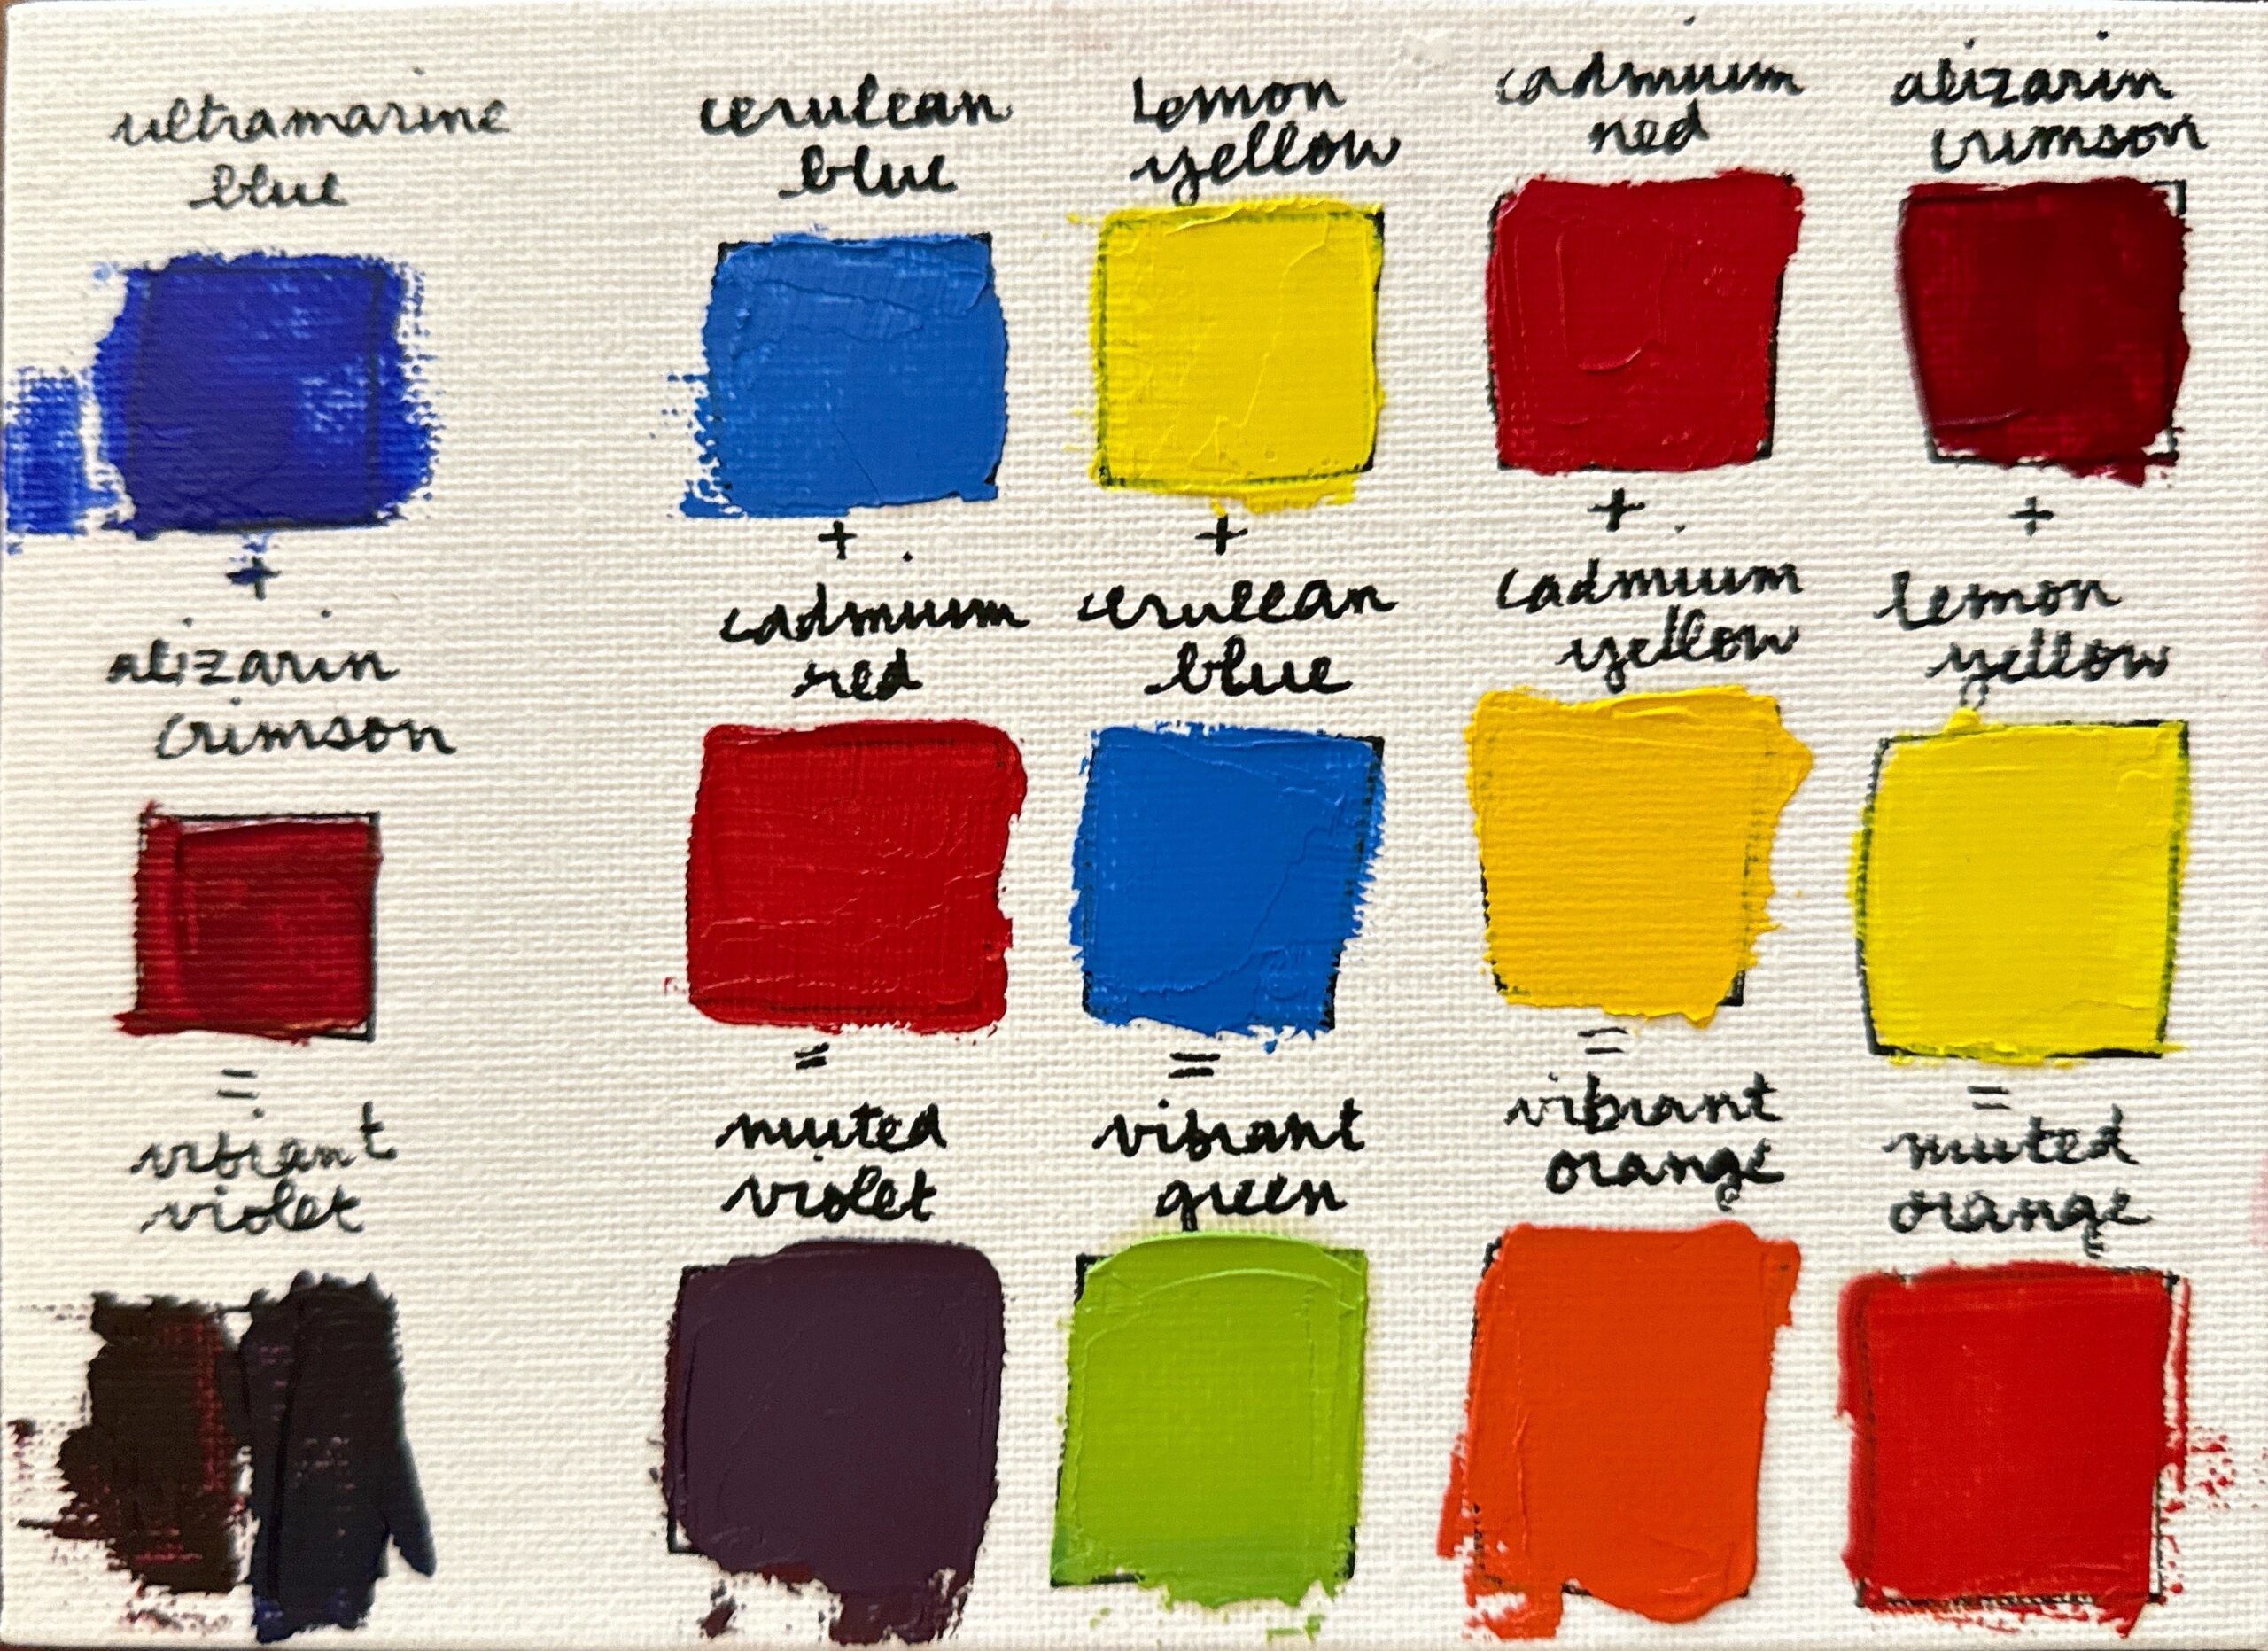 ultramarine
blue
+
alizarin
crimson
=
vibrant
violet
cerulean
blue
+
cadmium
red
=
muted
violet
lemon
yellow
+
cerulean
blue
=
vibrant
green
cadmium
red
+
cadmium
yellow
=
vibrant
orange
alizarin
crimson
+
lemon
yellow
=
muted
orange